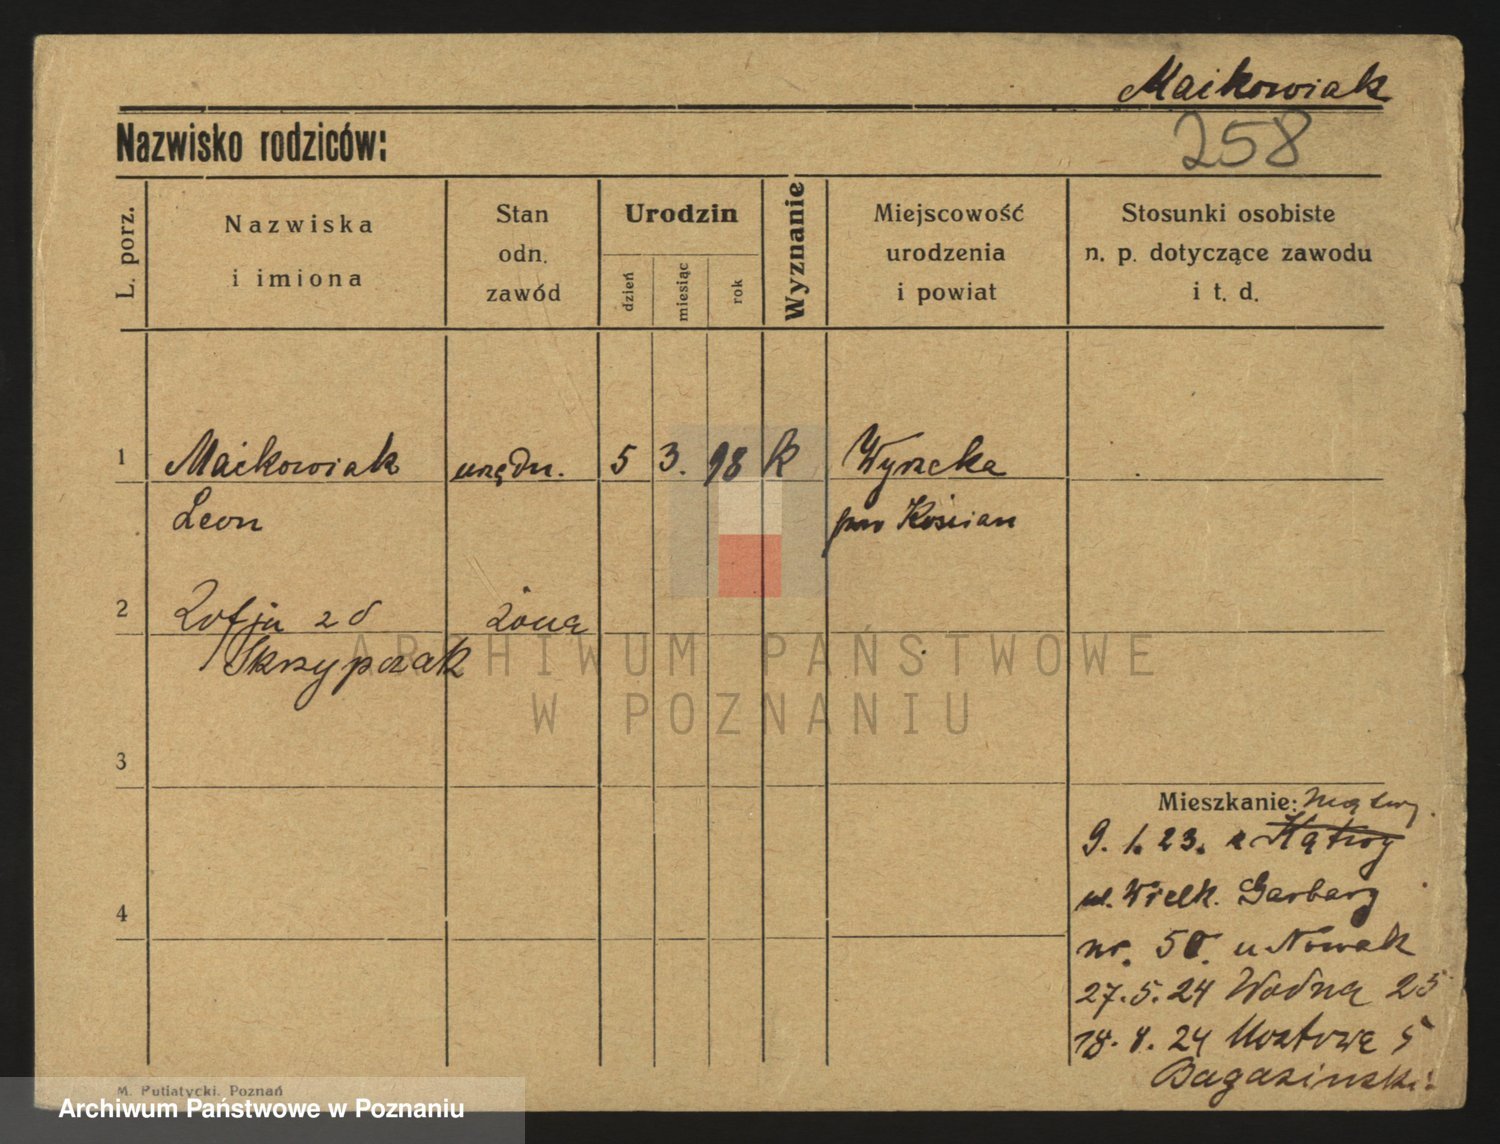 Maikowiak
Nazwisko rodziców:
258
L. porz.
Nazwiska
i imiona
Stan
odn.
zawód
Urodzin
dzień
miesiąc
rok
Wyznanie
Miejscowość
urodzenia
i powiat
Stosunki osobiste
n. p. dotyczące zawodu
i t. d.
1 Maikowiak urzędn. 5 3. 98 k Wyrzeka
Leon pow Kościan
2 Zofja z d żona
Skrzypczak
ARCHIWUM PAŃSTWOWE
W POZNANIU
3
Mieszkanie: Mątwy.
9. 1. 23. z Kątwy
ul. Wielk. Garbary
4
nr. 50. u Nowak
27. 5. 24 Wodna 25
18. 8. 24 Mostowa 5
Bagasinski
M. Putiatycki, Poznań
Archiwum Państwowe w Poznaniu